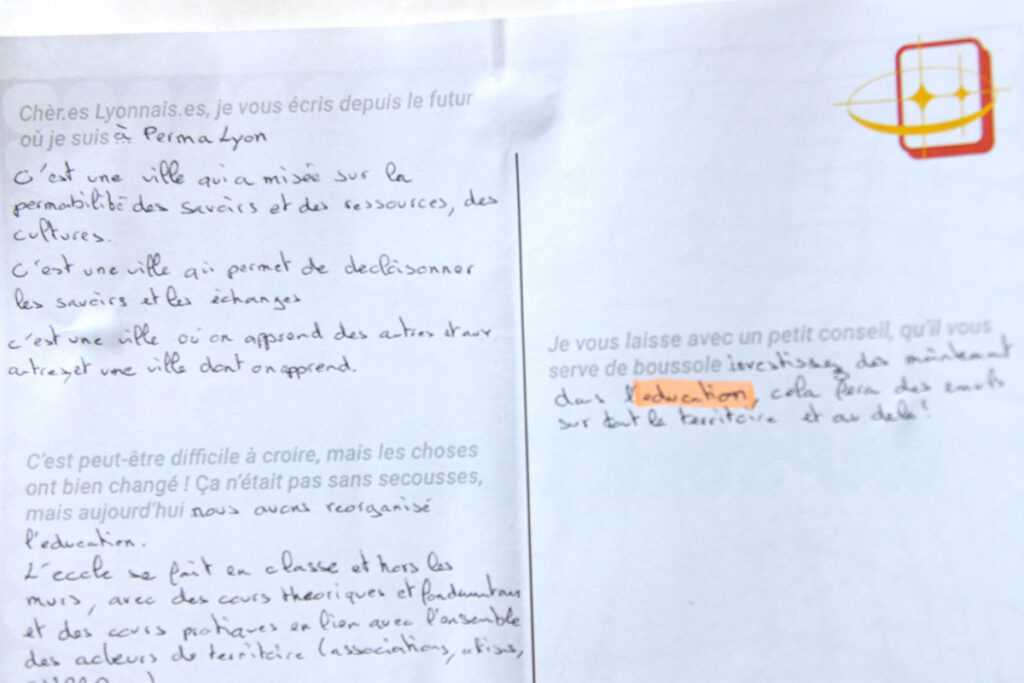 Chèr.es Lyonnais.es, je vous écris depuis le futur
où je suis à PermaLyon
C'est une ville qui a misée sur la
permabilité des savoirs et des ressources, des
cultures.
C'est une ville qui permet de decloisonner
les savoirs et les échanges
c'est une ville où on apprend des autres et aux
autres, et une ville dont on apprend.
C'est peut-être difficile à croire, mais les choses
ont bien changé ! Ça n'était pas sans secousses,
mais aujourd'hui nous avons reorganisé
l'education.
L'ecole se fait en classe et hors les
murs, avec des cours theoriques et fondamentaux
et des cours pratiques en lien avec l'ensemble
des acteurs du territoire (associations, artisans,
Je vous laisse avec un petit conseil, qu'il vous
serve de boussole investissez des maintenant
dans l'education, cela fera des
sur tout le territoire et au delà !